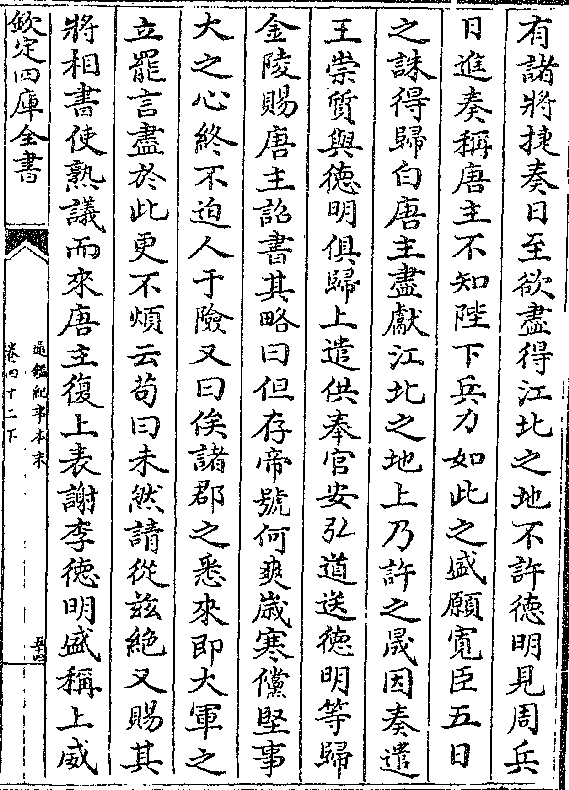 有諸將捷奏日至欲盡得江北之地不許德明見周兵
日進奏稱唐主不知陛下兵力如此之盛願寛臣五日
之誅得歸白唐主盡獻江北之地上乃許之晟因奏遣
王崇質與德明俱歸上遣供奉官安弘道送德明等歸
金陵賜唐主詔書其略曰但存帝號何爽歳寒儻堅事
大之心終不迫人于險又曰俟諸郡之悉來即大軍之
立罷言盡於此更不煩云苟曰未然請從茲絶又賜其
將相書使熟議而來唐主復上表謝李德明盛稱上威
欽定四庫全書
通鑑紀事本末
卷四十二下
五四